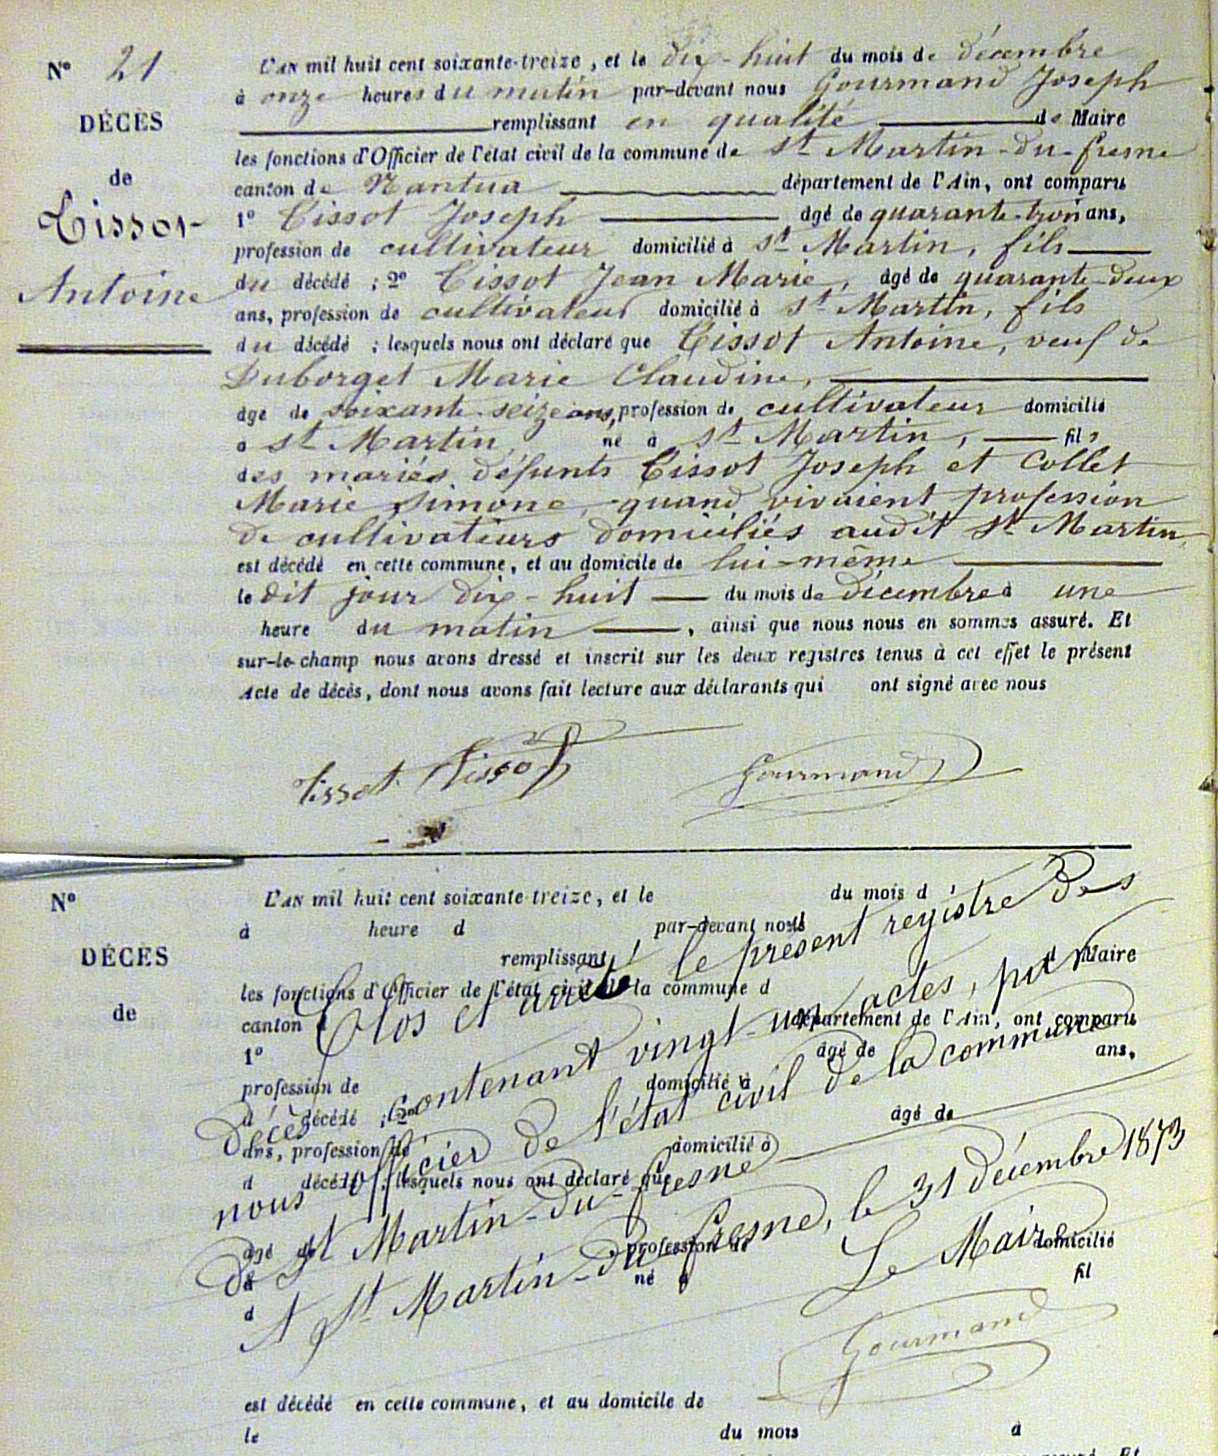 N° 21
DÉCÈS
de
Tissot
Antoine
L'AN mil huit cent soixante-treize, et le dix-huit du mois de décembre
à onze heures du matin par-devant nous Gourmand Joseph
remplissant en qualité de Maire
les fonctions d'Officier de l'état civil de la commune de St Martin-du-fresne
canton de Nantua département de l'Ain, ont comparu
1° Tissot Joseph âgé de quarante-trois ans,
profession de cultivateur domicilié à St Martin, fils
du décédé ; 2° Tissot Jean Marie, âgé de quarante-deux
ans, profession de cultivateur domicilié à St Martin, fils
du décédé ; lesquels nous ont déclaré que Tissot Antoine, veuf de
Duborget Marie Claudine,
âgé de soixante-seize ans, profession de cultivateur domicilié
à St Martin, né à St Martin, fils
des mariés défunts Tissot Joseph et Collet
Marie Simone, quand vivaient profession
de cultivateurs domiciliés audit St Martin,
est décédé en cette commune, et au domicile de lui-même
le dit jour dix-huit du mois de décembre à une
heure du matin, ainsi que nous nous en sommes assuré. Et
sur-le-champ nous avons dressé et inscrit sur les deux registres tenus à cet effet le présent
Acte de décès, dont nous avons fait lecture aux déclarants qui ont signé avec nous
Tissot Tissot Gourmand
N°
DÉCÈS
de
L'AN mil huit cent soixante-treize, et le du mois d
à heure d par-devant nous
remplissant d Maire
les fonctions d'Officier de l'état civil de la commune d
canton d département de l'Ain, ont comparu
1° âgé de ans,
profession de domicilié à
d décédé ; 2° âgé de
ans, profession de domicilié à
d décédé ; lesquels nous ont déclaré que
âgé de profession de domicilié
à né à fil
d
Clos et arrêté le présent registre des
décès contenant vingt-un actes, par
nous officier de l'état civil de la commune
de St Martin-du-fresne
A St Martin-du-fresne, le 31 décembre 1873
Le Maire
Gourmand
est décédé en cette commune, et au domicile de
le du mois à